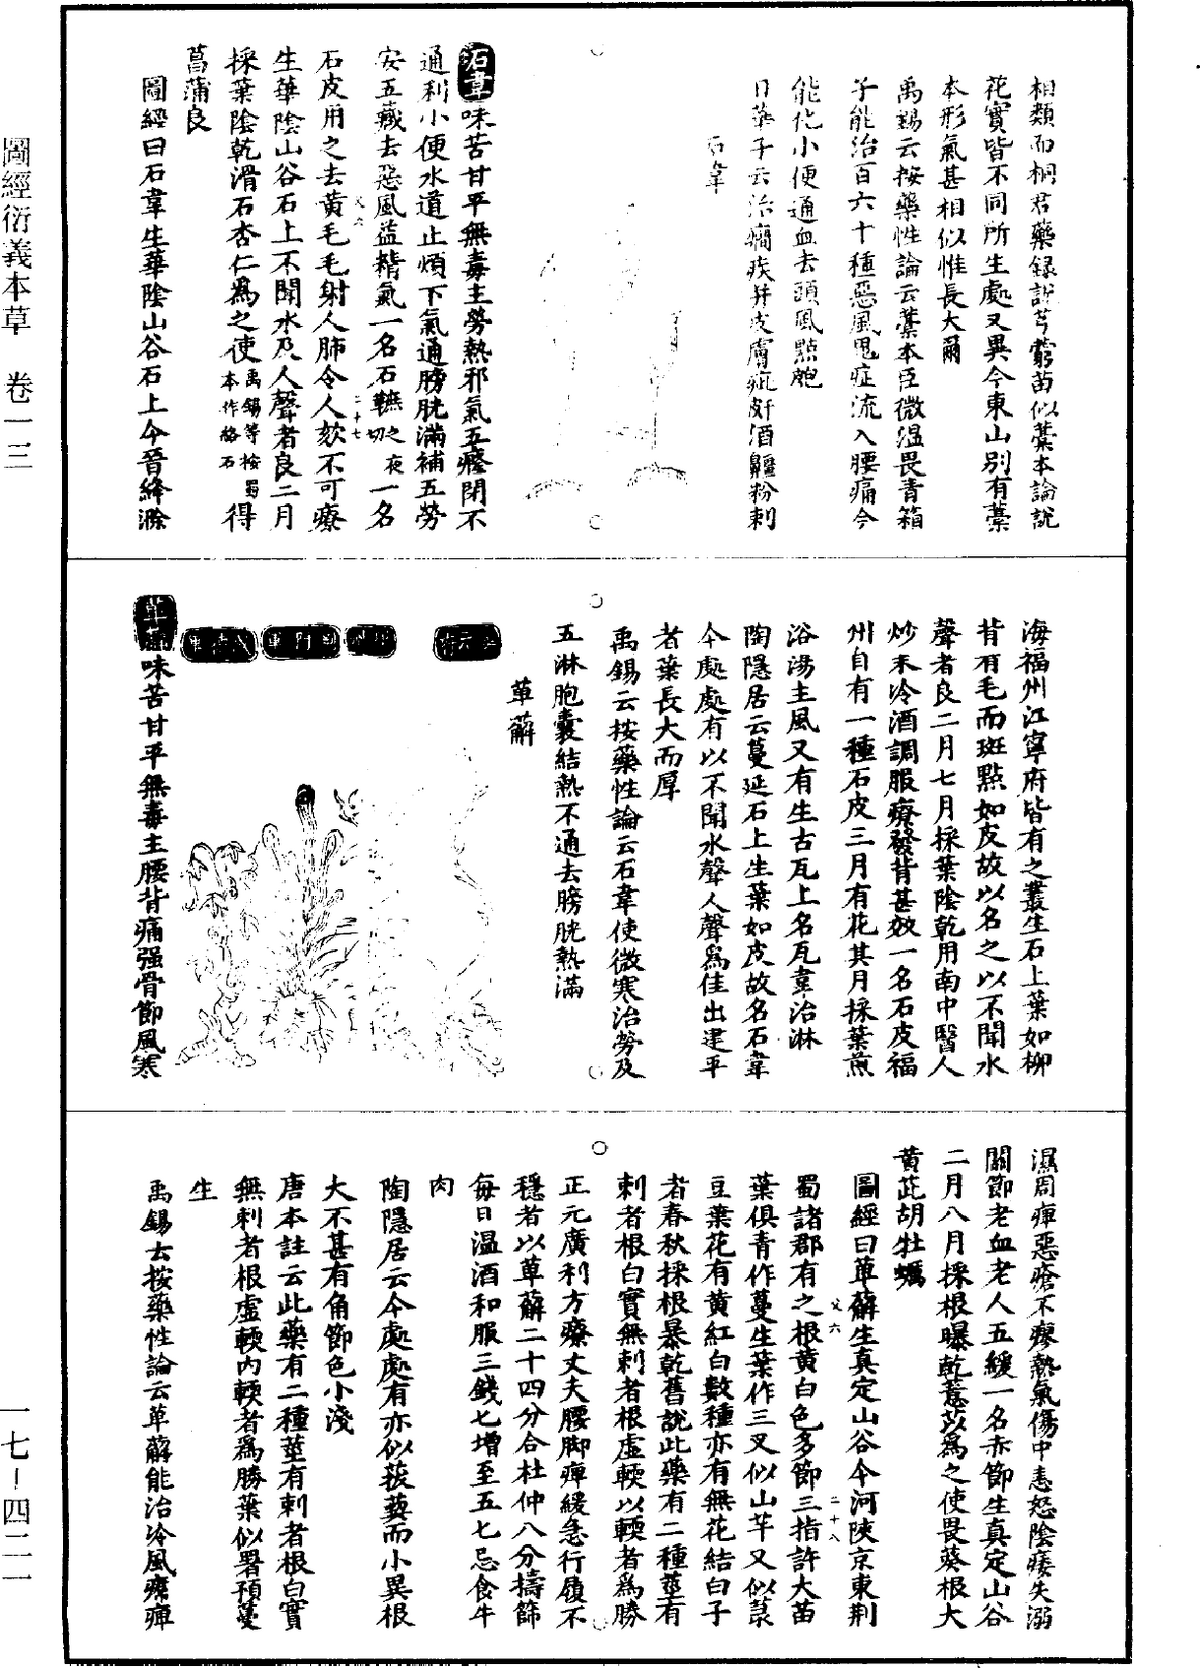 相類而桐君藥録説芎藭苗似藁本論説
花實皆不同所生處又異今東山别有藁
本形氣甚相似惟長大爾
禹錫云按藥性論云藁本臣微温畏青箱
子能治百六十種惡風鬼疰流入腰痛冷
能化小便通血去頭風䵟皰
日華子云治癎疾并皮膚疵皯酒齇粉刺
石韋
石韋味苦甘平無毒主勞熱邪氣五癃閉不
通利小便水道止煩下氣通膀胱滿補五勞
安五藏去惡風益精氣一名石䩾之夜切一名
石皮用之去黄毛毛射人肺令人欬不可療
生華陰山谷石上不聞水及人聲者良二月
採葉陰乾滑石杏仁爲之使禹錫等按蜀本作絡石得
菖蒲良
圖經曰石韋生華陰山谷石上今晉絳滁
海福州江寧府皆有之叢生石上葉如柳
背有毛而斑點如皮故以名之以不聞水
聲者良二月七月採葉陰乾用南中醫人
炒末冷酒調服療發背甚效一名石皮福
州自有一種石皮三月有花其月採葉煎
浴湯主風又有生古瓦上名瓦韋治淋
陶隱居云蔓延石上生葉如皮故名石韋
今處處有以不聞水聲人聲爲佳出建平
者葉長大而厚
禹錫云按藥性論云石韋使微寒治勞及
五淋胞囊結熱不通去膀胱熱滿
萆薢
萆薢味苦甘平無毒主腰背痛强骨節風寒
濕周痺惡瘡不瘳熱氣傷中恚怒陰痿失溺
關節老血老人五緩一名赤節生真定山谷
二月八月採根曝乾薏苡爲之使畏葵根大
黄茈胡牡蠣
圖經曰萆薢生真定山谷今河陜京東荆
蜀諸郡有之根黄白色多節三指許大苗
葉俱青作蔓生葉作三叉似山芋又似菉
豆葉花有黄紅白數種亦有無花結白子
者春秋採根暴乾舊説此藥有二種莖有
刺者根白實無刺者根虚輭以輭者爲勝
正元廣利方療丈夫腰脚痺緩急行履不
穩者以萆薢二十四分合杜仲八分擣篩
每日温酒和服三錢匕增至五匕忌食牛
肉
陶隱居云今處處有亦似菝葜而小異根
大不甚有角節色小淺
唐本註云此藥有二種莖有刺者根白實
無刺者根虚輭内輭者爲勝葉似署預蔓
生
禹錫云按藥性論云萆薢能治冷風㾏痺
圖經衍義本草　卷一三
一七—四二一